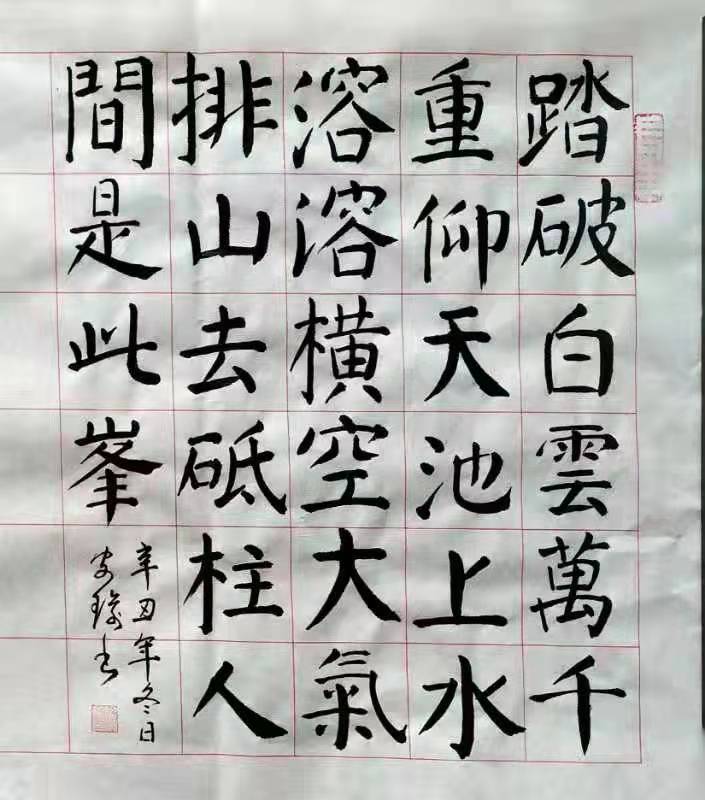 踏破白雲萬千
重仰天池上水
溶溶橫空大氣
排山去砥柱人
間是此峯
辛丑年冬日
书